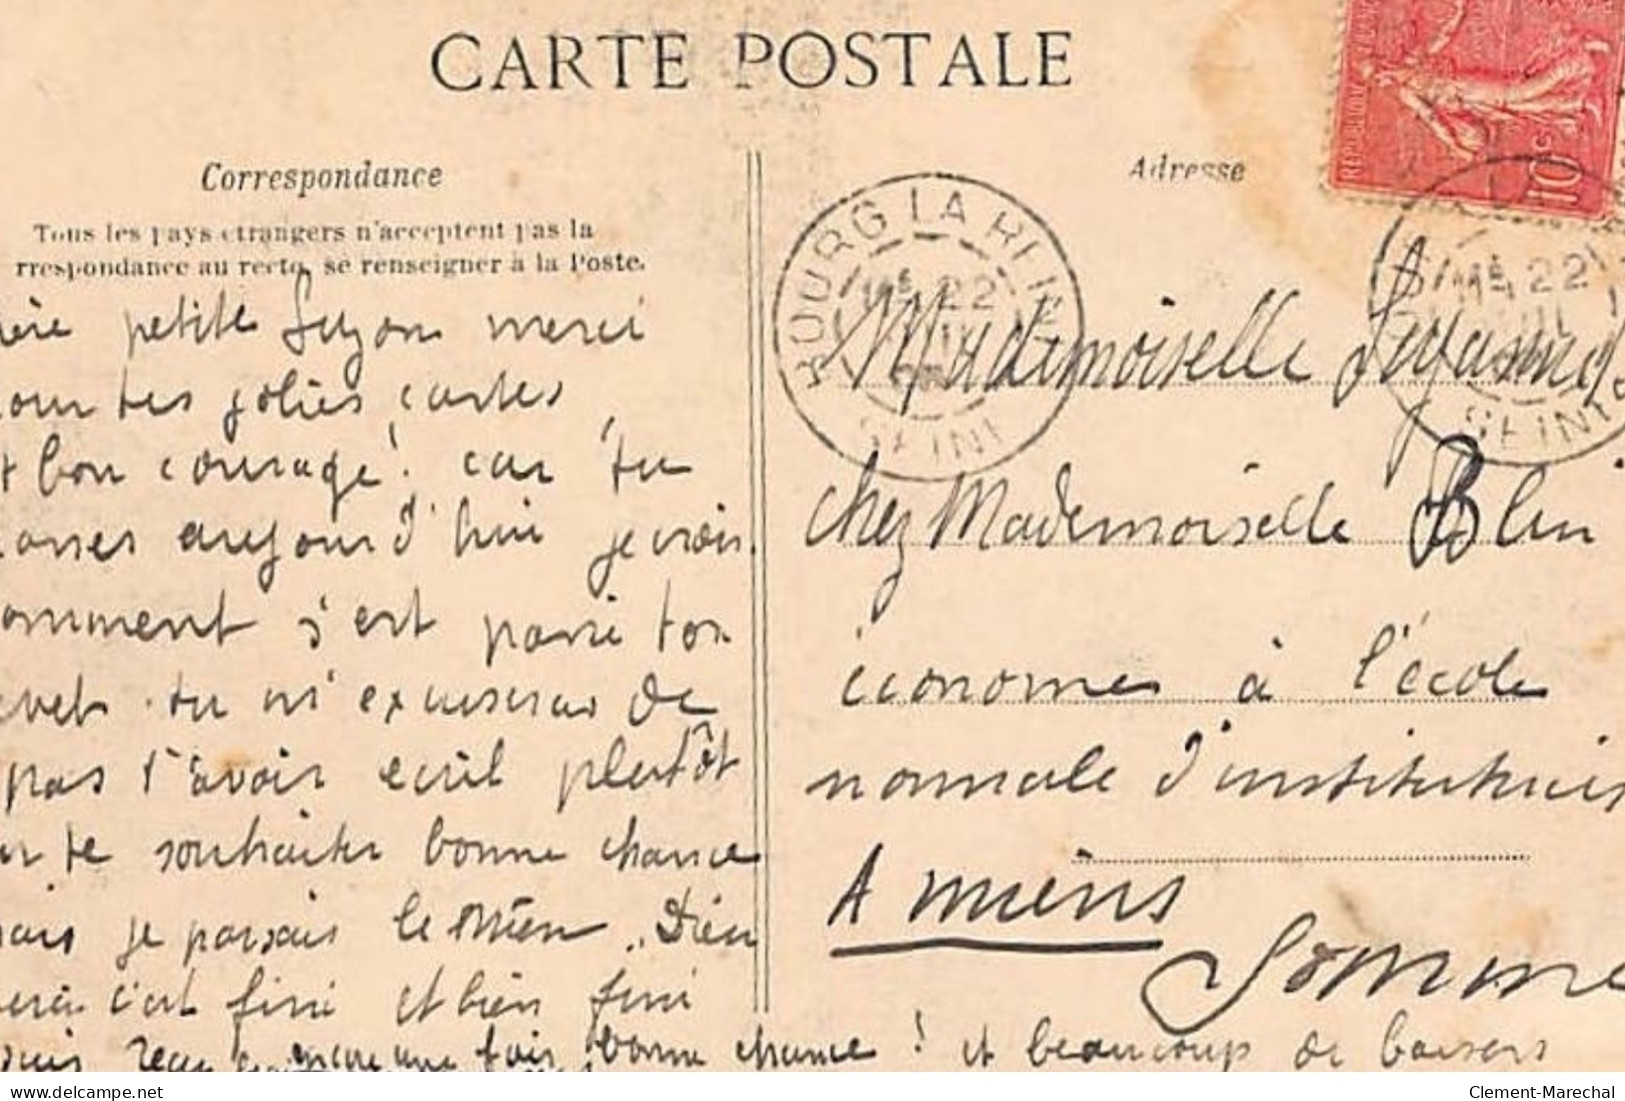 CARTE POSTALE
Correspondance
Tous les pays etrangers n'acceptent pas la
rrespondance au recto, se renseigner à la Poste.
ère petite Suzon merci
our tes jolies cartes
t bon courage! car tu
asses aujourd'hui je crois.
omment s'est passé ton
evet. tu m'excuseras de
pas t'avoir écrit plutôt
ur te souhaiter bonne chance
ais je passais le mien.. Dieu
erci c'est fini et bien fini
suis reçue encore une fois bonne chance! et beaucoup de baisers
Adresse
REPUBLIQUE
10c
BOURG LA REINE
22
SEINE
22
SEINE
Mademoiselle Suzanne
chez Mademoiselle Blin
économe à l'école
normale d'institutrices
Amiens
Somme
delcampe.net
Clement-Marechal